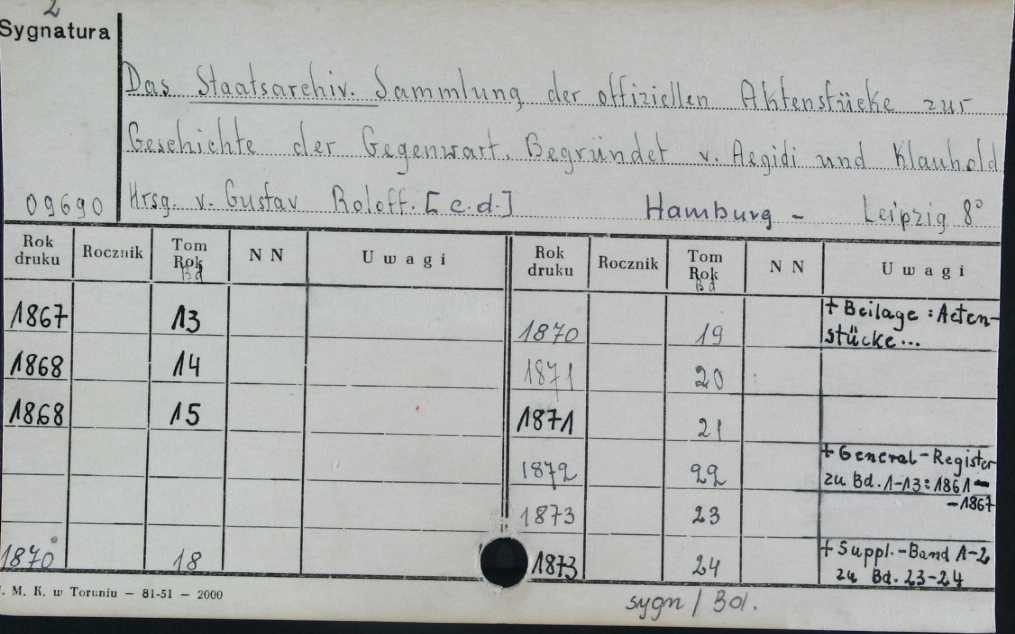 2
Sygnatura
Das Staatsarchiv. Sammlung der offiziellen Aktenstücke zur
Geschichte der Gegenwart. Begründet v. Aegidi und Klauhold
09690 Hrsg. v. Gustav Roloff. [c.d.] Hamburg - Leipzig 8°
Rok druku Rocznik Tom Rok Bd NN Uwagi Rok druku Rocznik Tom Rok Bd NN Uwagi
1867 13 1870 19 + Beilage: Acten-
stücke...
1868 14 1871 20
1868 15 1871 21
1872 22 + General-Register
zu Bd. 1-13: 1861-
-1867
1873 23
1870 18 1873 24 + Suppl.-Band 1-2
zu Bd. 23-24
. M. K. w Toruniu — 81-51 — 2000
sygn / Bd.